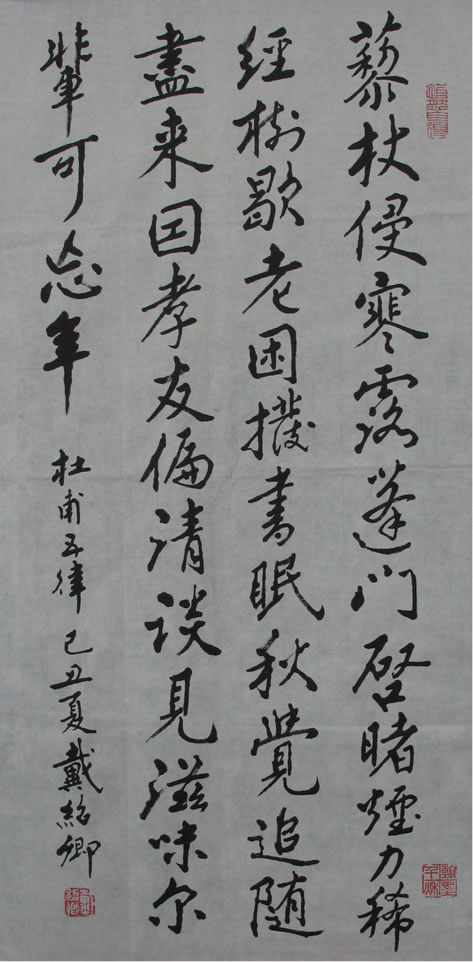 藜杖侵寒露蓬门啓曙煙力稀
經樹歇老困撥書眠秋覺追随
盡来因孝友偏清谈見滋味尔
輩可忘年 杜甫五律 己丑夏戴紹卿